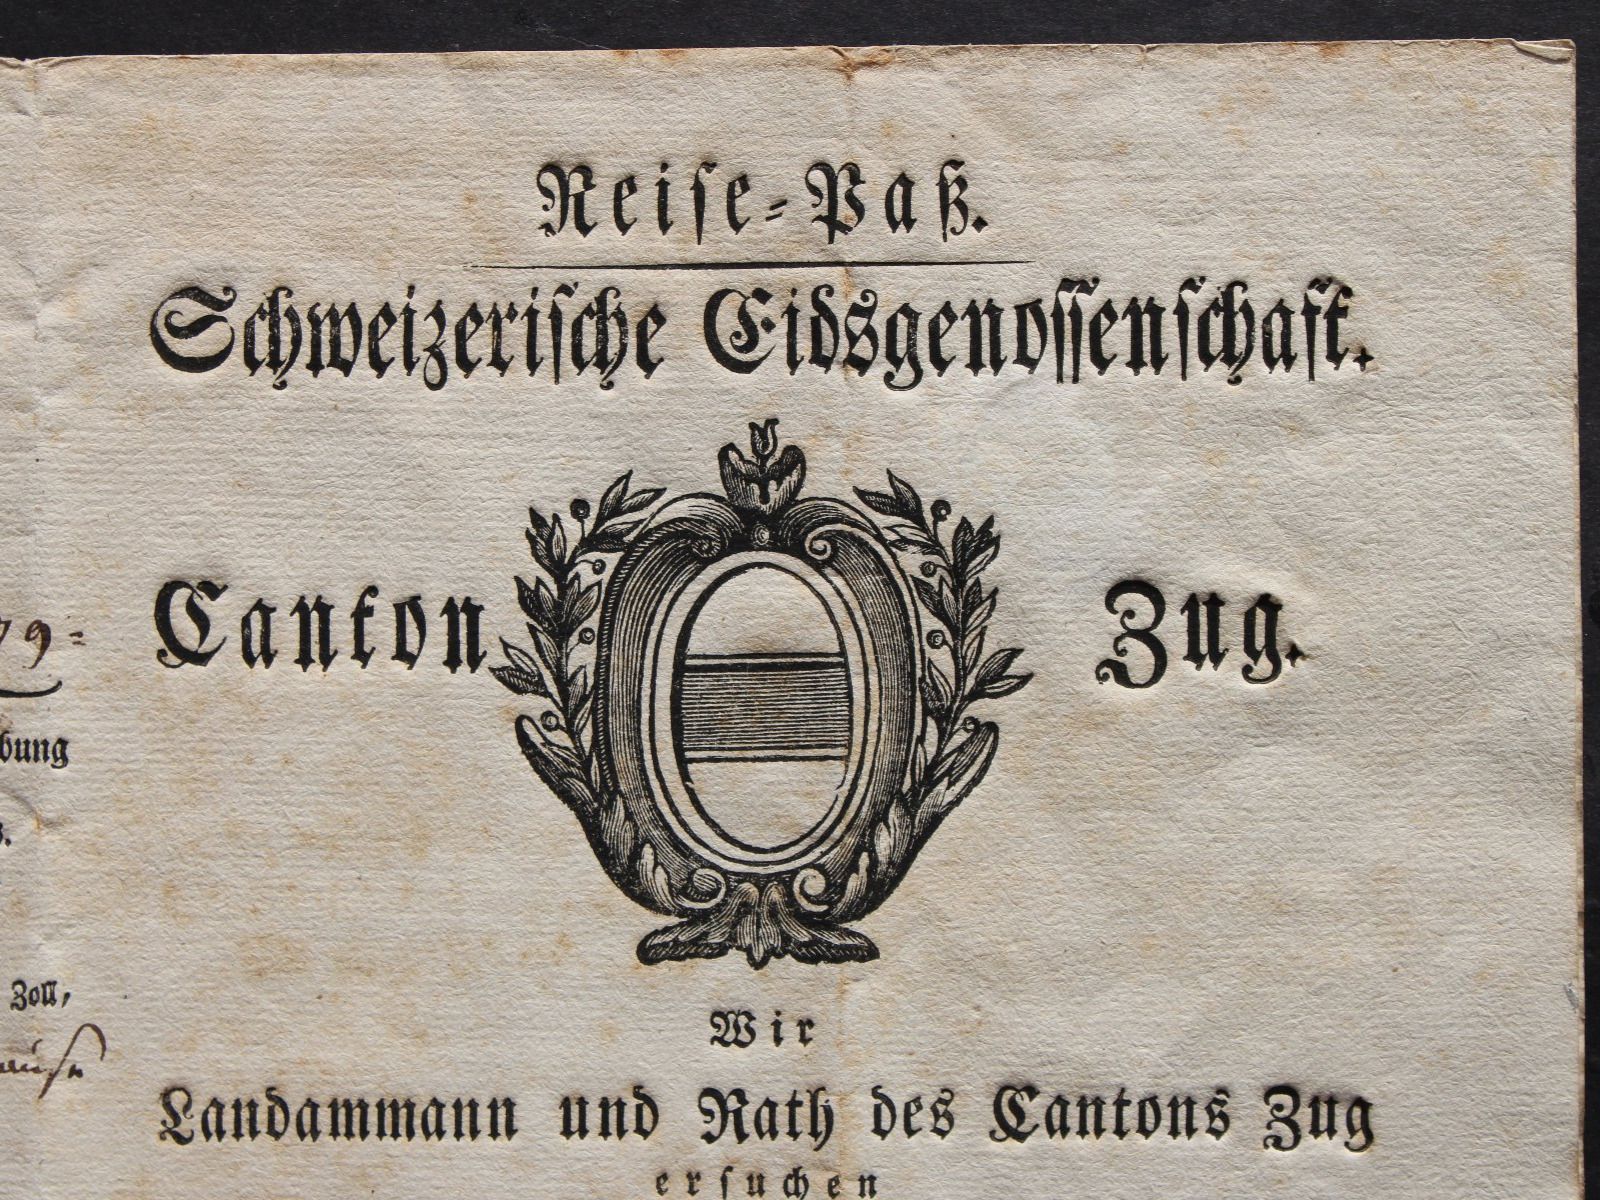 Reise-Paß.
Schweizerische Eidsgenossenschaft.
Canton Zug.
79=
bung
Zoll,
Wir
Landammann und Rath des Cantons Zug
ersuchen